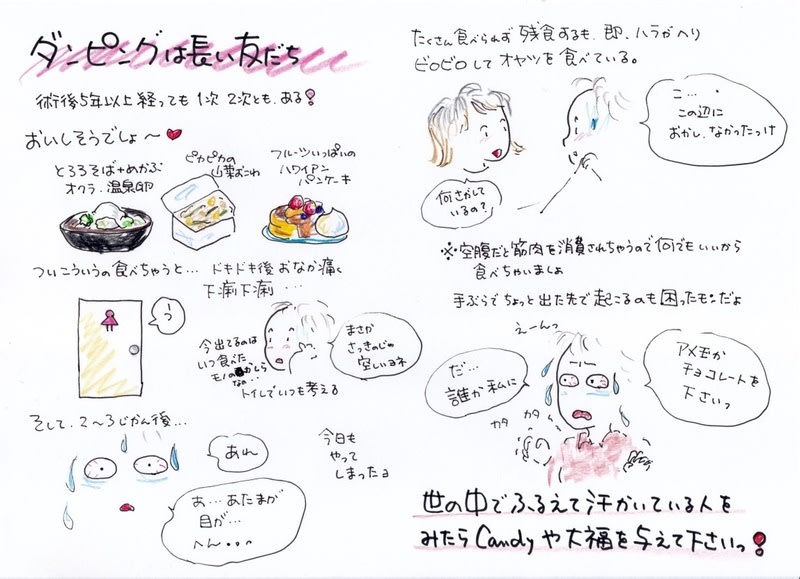 ダンピングは長い友だち
術後5年以上経っても1次 2次とも、ある!
おいしそうでしょ〜♥
とろろそば+めかぶ
オクラ、温泉卵
ピカピカの
山菜おこわ
フルーツいっぱいの
ハワイアン
パンケーキ
ついこういうの食べちゃうと… ドキドキ後 おなか痛く
下痢下痢…
う
今出てるのは
いつ食べた
モノの
なの‥
トイレでいつも考える
まさか
さっきの
そして、2〜3じかん後…
あれ
あ…あたまが
目が…
へん…。
今日も
やって
しまったョ
たくさん食べられず 残食するも、即、ハラがへり
ピロピロして オヤツを食べている。
何さがして
いるの?
こ…、
この辺に
おかし、なかったっけ
※空腹だと筋肉を消費されちゃうので何でもいいから
食べちゃいましょ
手ぶらでちょっと出た先で起こるのも困ったモンだよ
えーんっ
だ…
誰か私に
カタ カタ
アメモか
チョコレートを
下さいっ
世の中でふるえて汗かいている人を
みたらCandyや大福を与えて下さいっ!